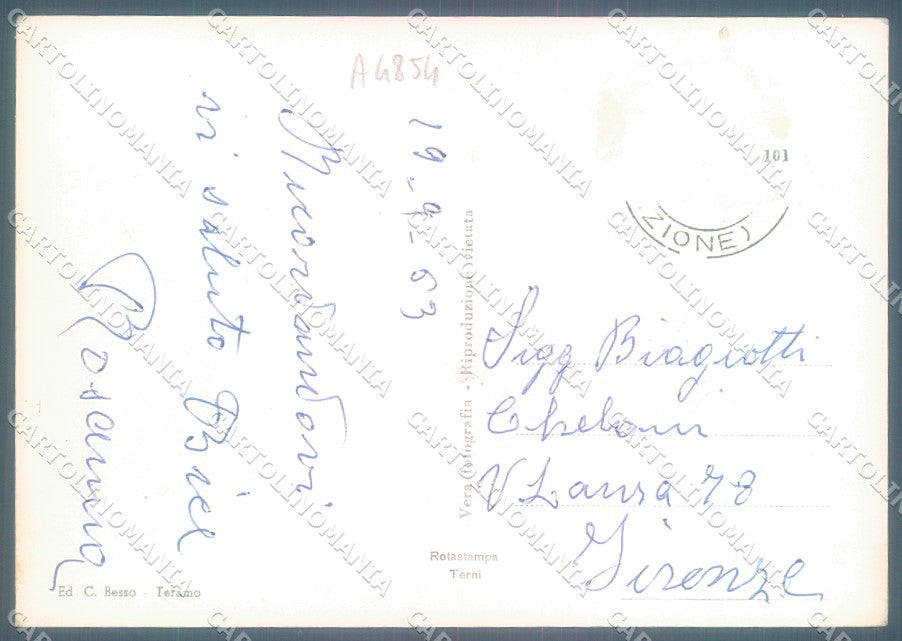 A4854
19-9-63
Ricordandovi
vi saluto Bice
Rosanna
Vera fotografia - Riproduzione vietata
101
ZIONE)
Sigg Biagiotti
V Lanza 73
Firenze
Rotastampa
Terni
Ed C. Besso - Teramo
CARTOLINOMANIA